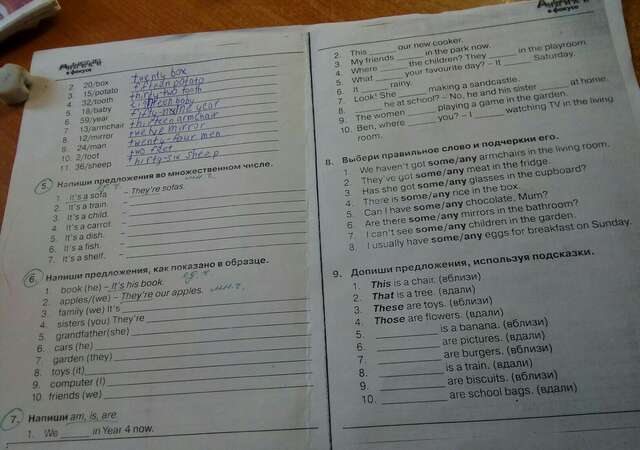 Английский в фокусе
2. 20/box twenty box
3. 15/potato fifteen potato
4. 32/tooth thirty-two tooth
5. 18/baby baby
6. 59/year fifty-nine year
7. 13/armchair thirteen armchair
8. 12/mirror twelve mirror
9. 24/man twenty-four men
10. 2/foot two feet
11. 36/sheep thirty-six sheep
5. Напиши предложения во множественном числе.
ед. ч. мн. ч.
1. It's a sofa – They're sofas.
2. It's a train.
3. It's a child.
4. It's a carrot.
5. It's a dish.
6. It's a fish.
7. It's a shelf.
6. Напиши предложения, как показано в образце.
ед. ч.
1. book (he) – It's his book.
2. apples/(we) – They're our apples. мн. ч.
3. family (we) It's
4. sisters (you) They're
5. grandfather(she)
6. cars (he)
7. garden (they)
8. toys (it)
9. computer (I)
10. friends (we)
7. Напиши am, is, are.
1. We ______ in Year 4 now.
Английский в фокусе
2. This ______ our new cooker.
3. My friends ______ in the park now.
4. Where ______ the children? They ______ in the playroom.
5. What ______ your favourite day? – It ______ Saturday.
6. It ______ rainy.
7. Look! She ______ making a sandcastle.
8. ______ he at school? – No, he and his sister ______ at home.
9. The women ______ playing a game in the garden.
10. Ben, where ______ you? – I ______ watching TV in the living
room.
8. Выбери правильное слово и подчеркни его.
1. We haven't got some/any armchairs in the living room.
2. They've got some/any meat in the fridge.
3. Has she got some/any glasses in the cupboard?
4. There is some/any rice in the box.
5. Can I have some/any chocolate, Mum?
6. Are there some/any mirrors in the bathroom?
7. I can't see some/any children in the garden.
8. I usually have some/any eggs for breakfast on Sunday.
9. Допиши предложения, используя подсказки.
1. This is a chair. (вблизи)
2. That is a tree. (вдали)
3. These are toys. (вблизи)
4. Those are flowers. (вдали)
5. ______ is a banana. (вблизи)
6. ______ are pictures. (вдали)
7. ______ are burgers. (вблизи)
8. ______ is a train. (вдали)
9. ______ are biscuits. (вдали)
10. ______ are school bags. (вдали)